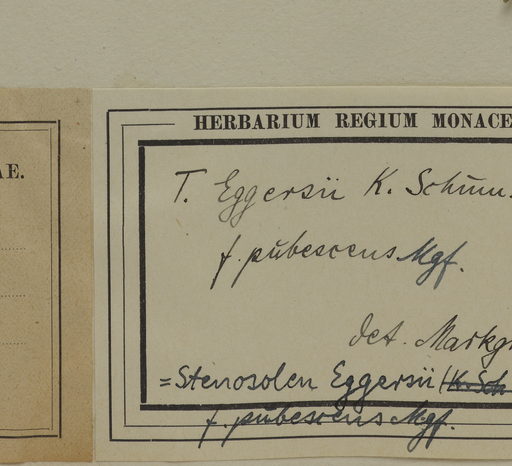 AE.
HERBARIUM REGIUM MONACE
T. Eggersii K. Schum.
f. pubescens Mgf.
det. Markgr
=Stenosolen Eggersii (K. Sch
f. pubescens Mgf.